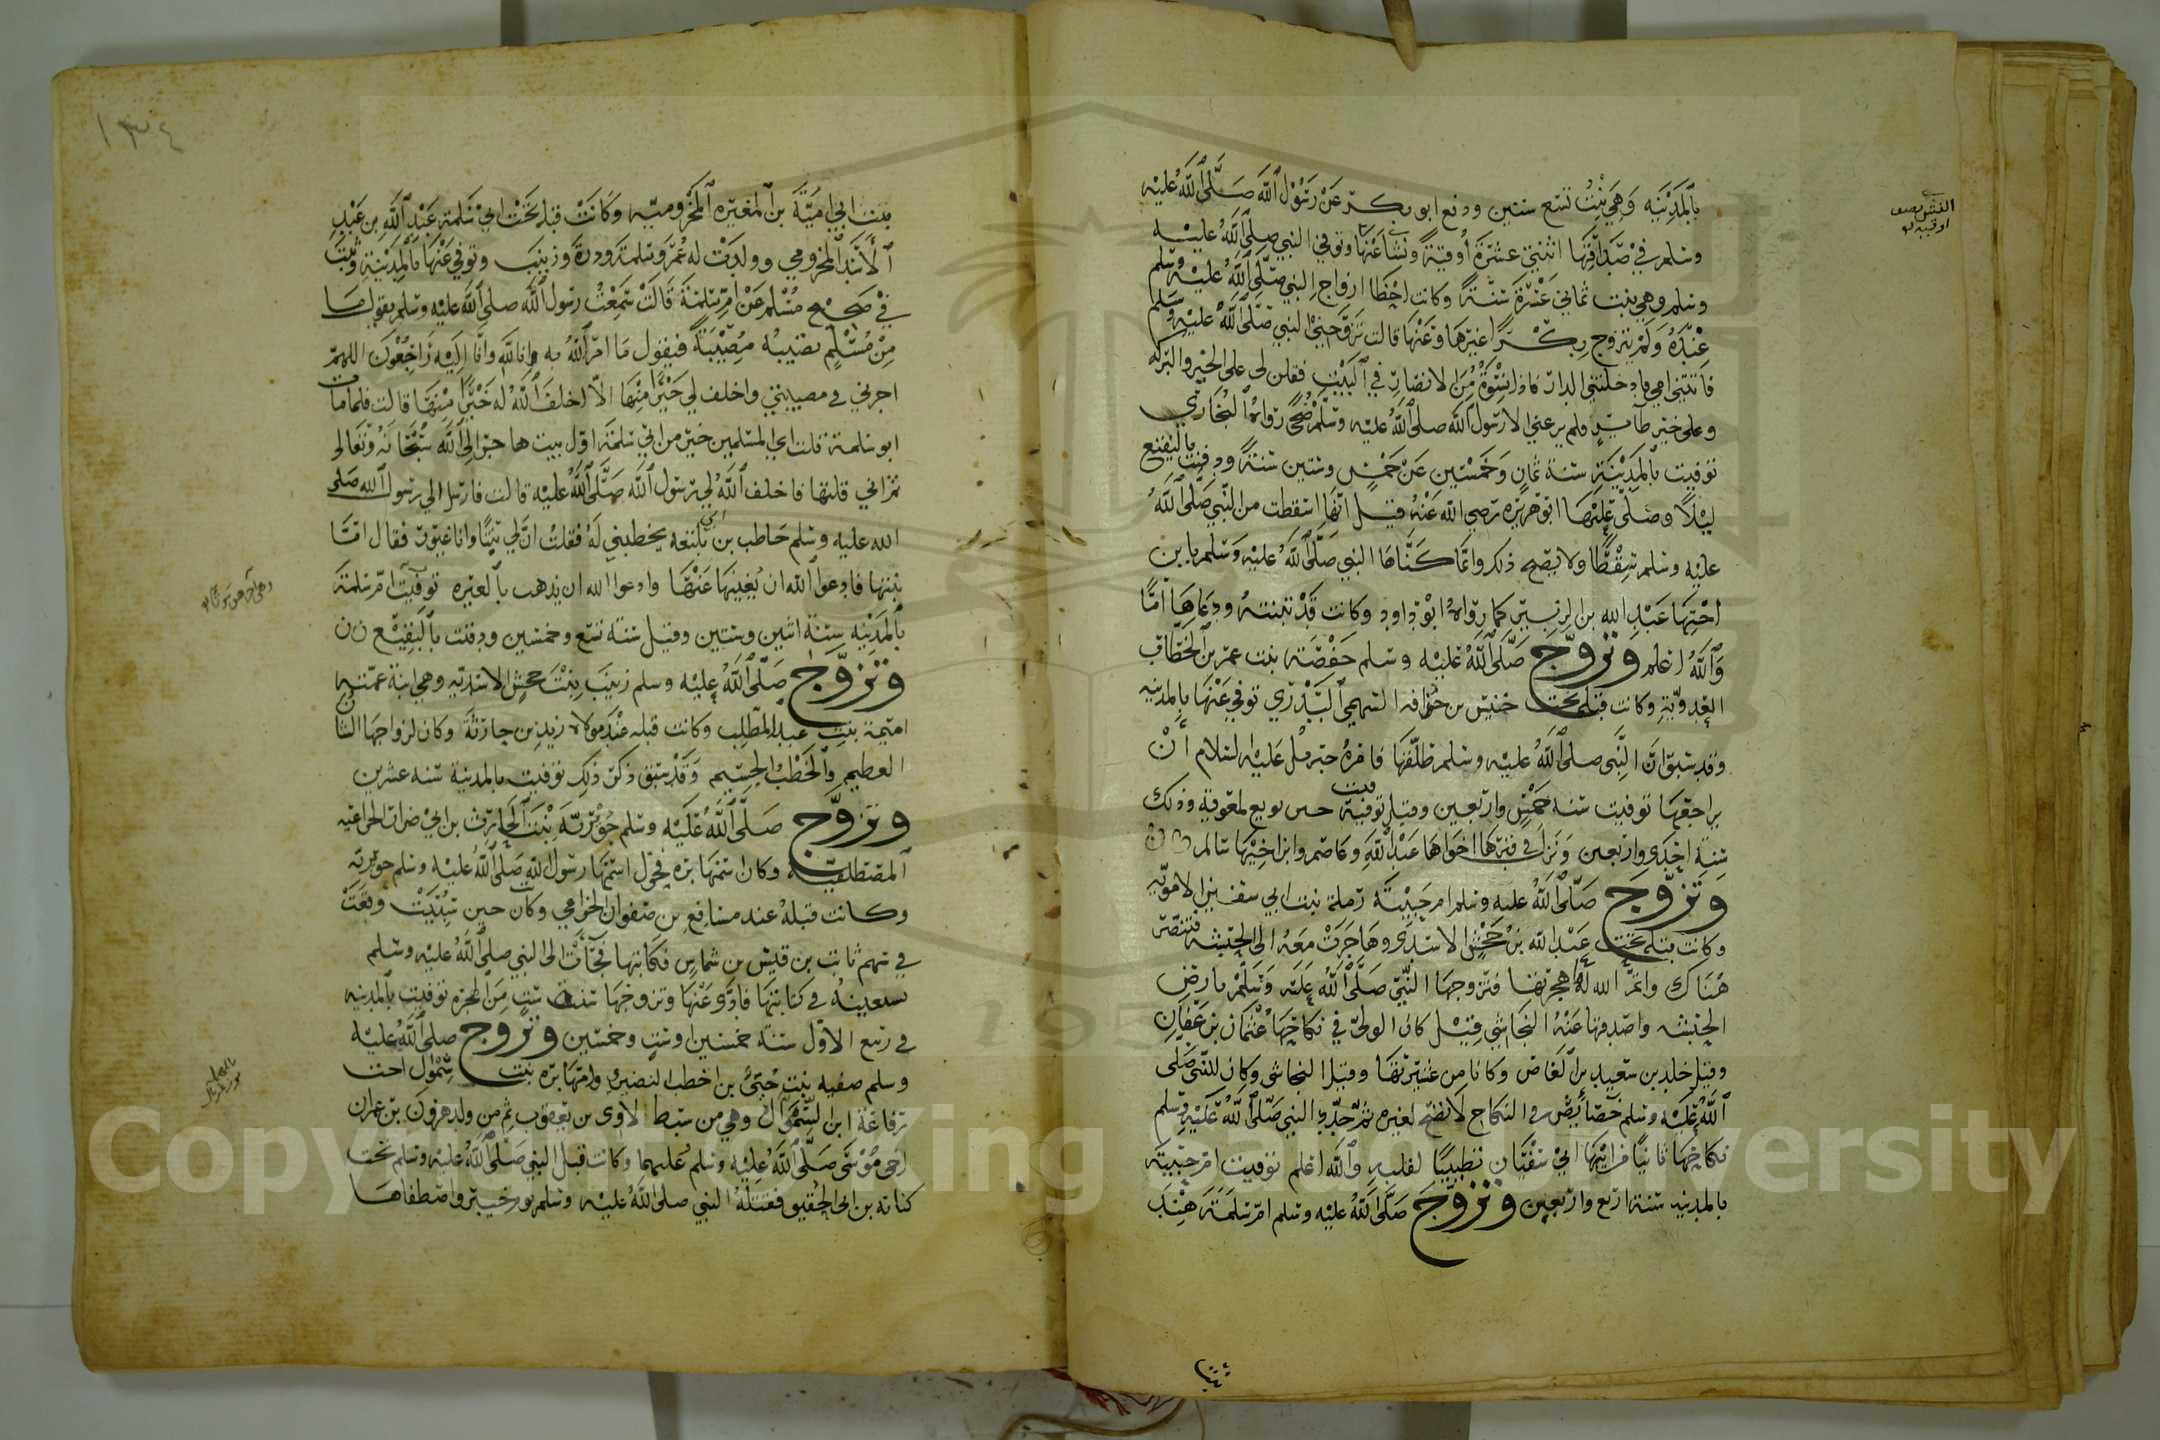 بالمدينه وهي بنت تسع سنين ودفع ابو بكر عن رسول الله صلى الله عليه
وسلم في صداقها اثنتي عشرة أوقية ونشا عنها وتوفي النبي صلى الله عليه
وسلم وهي بنت ثماني عشرة سنة وكانت احظا ازواج النبي صلى الله عليه وسلم
عنده ولم يتزوج بكرا غيرها وعنها قالت تزوجني النبي صلى الله عليه وسلم
فاتتني امي فادخلتني الدار فاذا نسوة من الانصار في البيت فقلن لي على الخير والبركه
وعلى خير طاير فلم يرعني الا رسول الله صلى الله عليه وسلم ضحى رواه البخاري
توفيت بالمدينة سنة ثمان وخمسين عن خمس وستين سنة ودفنت بالبقيع
ليلا وصلى عليها ابو هريره رضي الله عنه قيل انها اسقطت من النبي صلى الله
عليه وسلم سقطا ولا يصح ذلك وانما كناها النبي صلى الله عليه وسلم بابن
اختها عبد الله بن الزبير كما رواه ابو داود وكانت قد تبنته ودعاها امّا
والله اعلم وتزوج صلى الله عليه وسلم حفصة بنت عمر بن الخطاب
العدوية وكانت قبله تحت خنيس بن حذافه السهمي البدري توفي عنها بالمدينه
وقد سبق ان النبي صلى الله عليه وسلم طلقها فامره جبريل عليه السلام أن
يراجعها توفيت سنة خمس واربعين وقيل توفيت حين بويع لمعوية وذلك
سنة احدى واربعين ونزل في قبرها اخواها عبد الله وعاصم وابن اخيها سالم
وتزوج صلى الله عليه وسلم ام حبيبة رملة بنت ابي سفين الاموية
وكانت قبله تحت عبد الله بن جحش الاسدي وهاجرت معه الى الحبشه فتنصر
هناك واتم الله لها هجرتها فتزوجها النبي صلى الله عليه وسلم بارض
الحبشه واصدقها عنه النجاشي قيل كان الولي في نكاحها عثمان بن عفان
وقيل خلد بن سعيد بن العاص وكانا من عشيرتها وقيل النجاشي وكان للنبي صلى
الله عليه وسلم خصائص في النكاح لا تفتح لغيره ثم جدد النبي صلى الله عليه وسلم
نكاحها ثانيا من ابيها ابي سفيان تطييبا لقلبه والله اعلم توفيت ام حبيبة
بالمدينه سنة اربع واربعين وتزوج صلى الله عليه وسلم ام سلمة هند
النش نصف
اوقيه
بنت
١٣٤
بنت ابي امية بن المغيره المخزوميه وكانت قبله تحت ابي سلمة عبد الله بن عبد
الأسد المخزومي وولدت له عمر وسلمة ودرة وزينب وتوفي عنها بالمدينة وثبت
في صحيح مسلم عن ام سلمة قالت سمعت رسول الله صلى الله عليه وسلم يقول ما
من مسلم تصيبه مصيبة فيقول ما امر الله به وانا لله وانا اليه راجعون اللهم
اجرني في مصيبتي واخلف لي خيرا منها الا اخلف الله له خيرا منها قالت فلما مات
ابو سلمة قلت اي المسلمين خير من ابي سلمة اول بيت هاجر الى الله سبحانه وتعالى
ثم اني قلتها فاخلف الله لي رسول الله صلى الله عليه قالت فارسل الي رسول الله صلى
الله عليه وسلم حاطب بن ابي بلتعه يخطبني له فقلت ان لي بنتا وانا غيور فقال امّا
بنتها فادعوا الله ان يغنيها عنها وادعوا الله ان يذهب بالغيره توفيت ام سلمة
بالمدينه سنة اثنين وستين وقيل سنة تسع وخمسين ودفنت بالبقيع
وتزوج صلى الله عليه وسلم زينب بنت جحش الاسديه وهي ابنة عمته
اميمة بنت عبد المطلب وكانت قبله عند مولاه زيد بن حارثة وكان لزواجها الشان
العظيم والخطب الجسيم وقد سبق ذكر ذلك توفيت بالمدينة سنة عشرين
وتزوج صلى الله عليه وسلم جويرية بنت الحارث بن ابي ضرار الخزاعيه
المصطلقية وكان اسمها بره فحول اسمها رسول الله صلى الله عليه وسلم جويريه
وكانت قبله عند مسافع بن صفوان الخزاعي وكانت حين سبيت وقعت
في سهم ثابت بن قيس بن شماس فكاتبها فجاءت الى النبي صلى الله عليه وسلم
تستعينه في كتابتها فادى عنها وتزوجها سنة ست من الهجره توفيت بالمدينه
في ربيع الاول سنة خمسين او ست وخمسين وتزوج صلى الله عليه
وسلم صفيه بنت حيي بن اخطب النضيري وامها بره بنت شموال اخت
رفاعة ابن السموال وهي من سبط لاوى بن يعقوب ثم من ولد هرون بن عمران
اخي موسى صلى الله عليه وسلم عليهما وكانت قبل النبي صلى الله عليه وسلم تحت
كنانه بن ابي الحقيق فقتله النبي صلى الله عليه وسلم يوم خيبر واصطفاها
Copyright © King Saud University